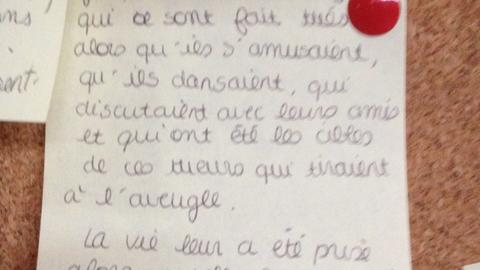 ns
ent.
qui ce sont fait tués
alors qu'ils s'amusaient,
qu'ils dansaient, qui
discutaient avec leurs amis
et qui ont été les cibles
de ces tueurs qui tiraient
à l'aveugle.
La vie leur a été prise
alors